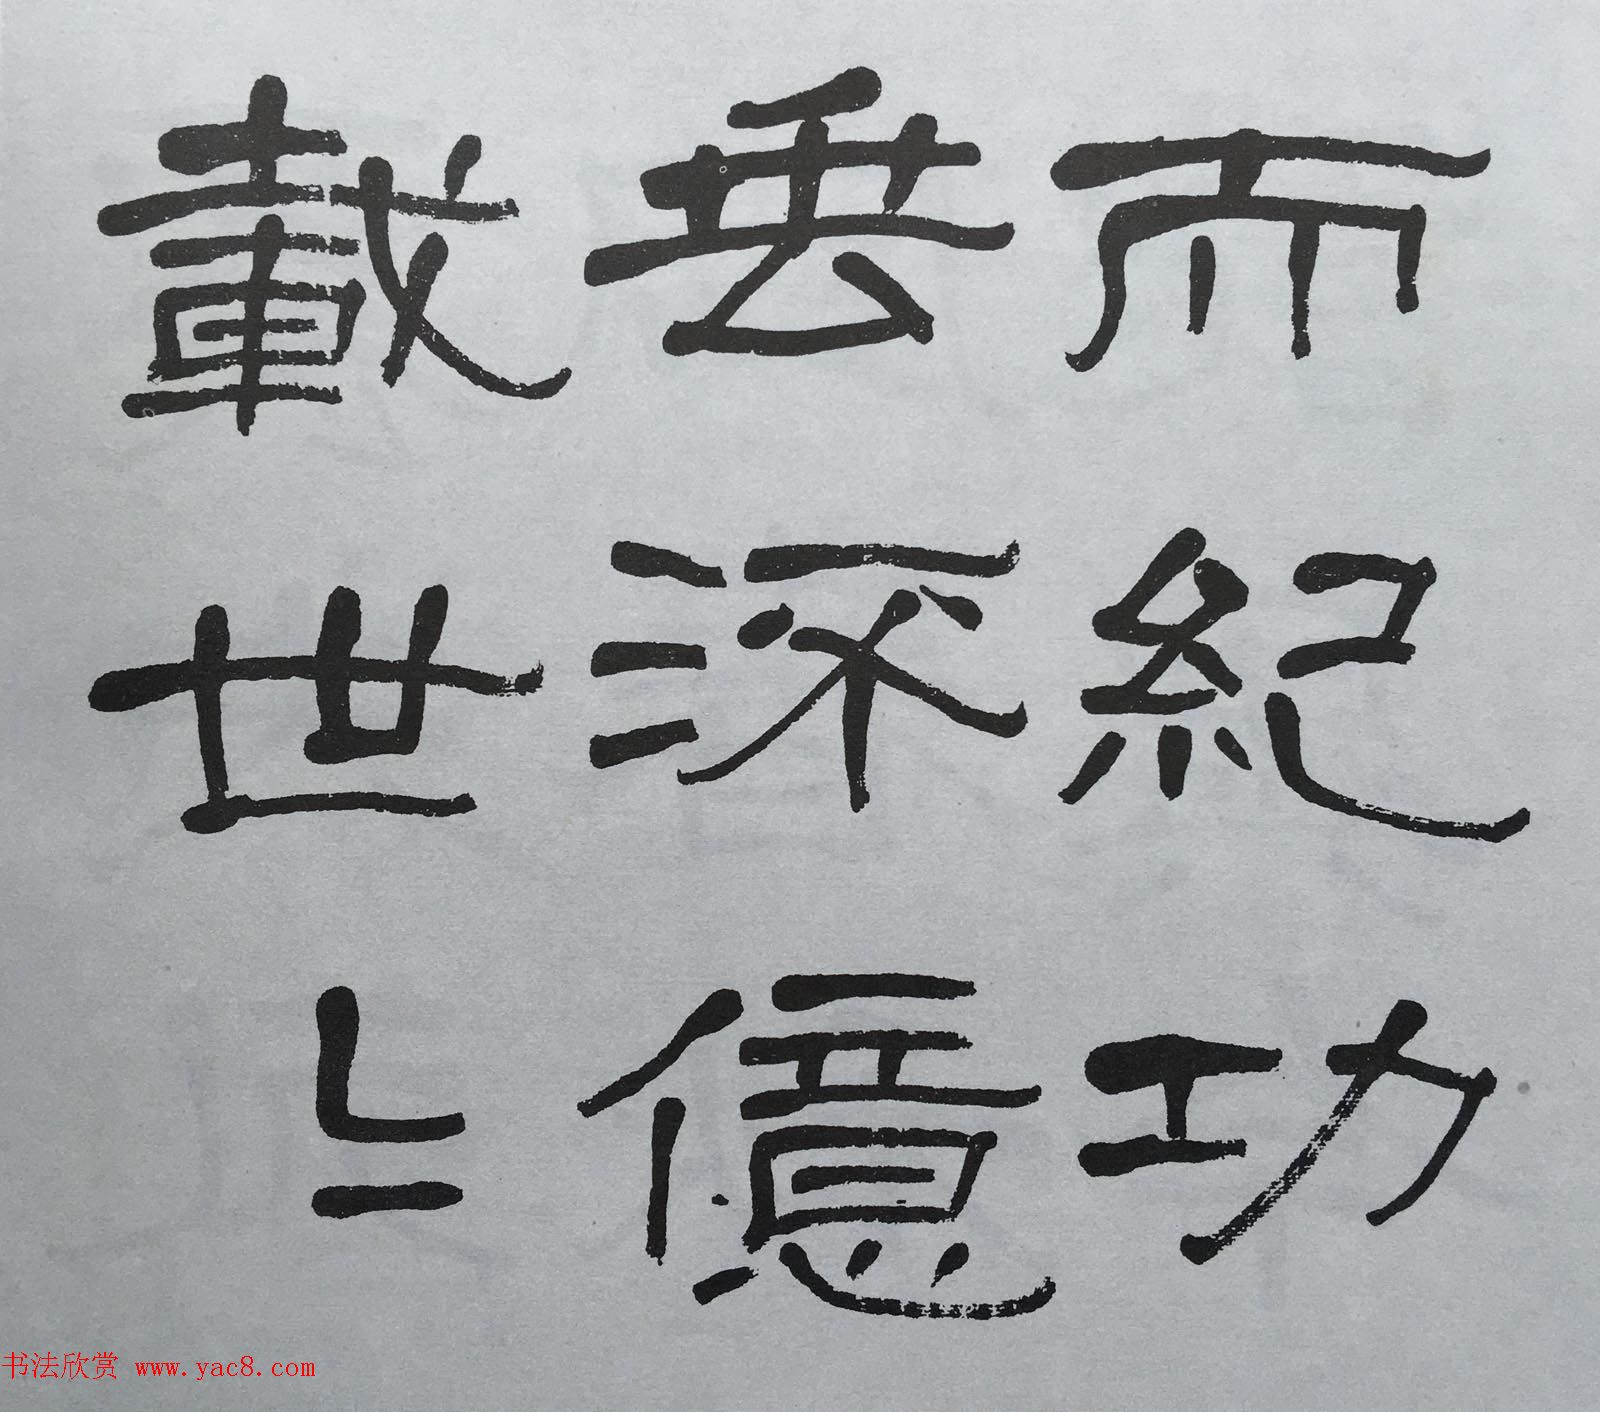 而紀功
垂流億
載世〻
书法欣赏 www.yac8.com